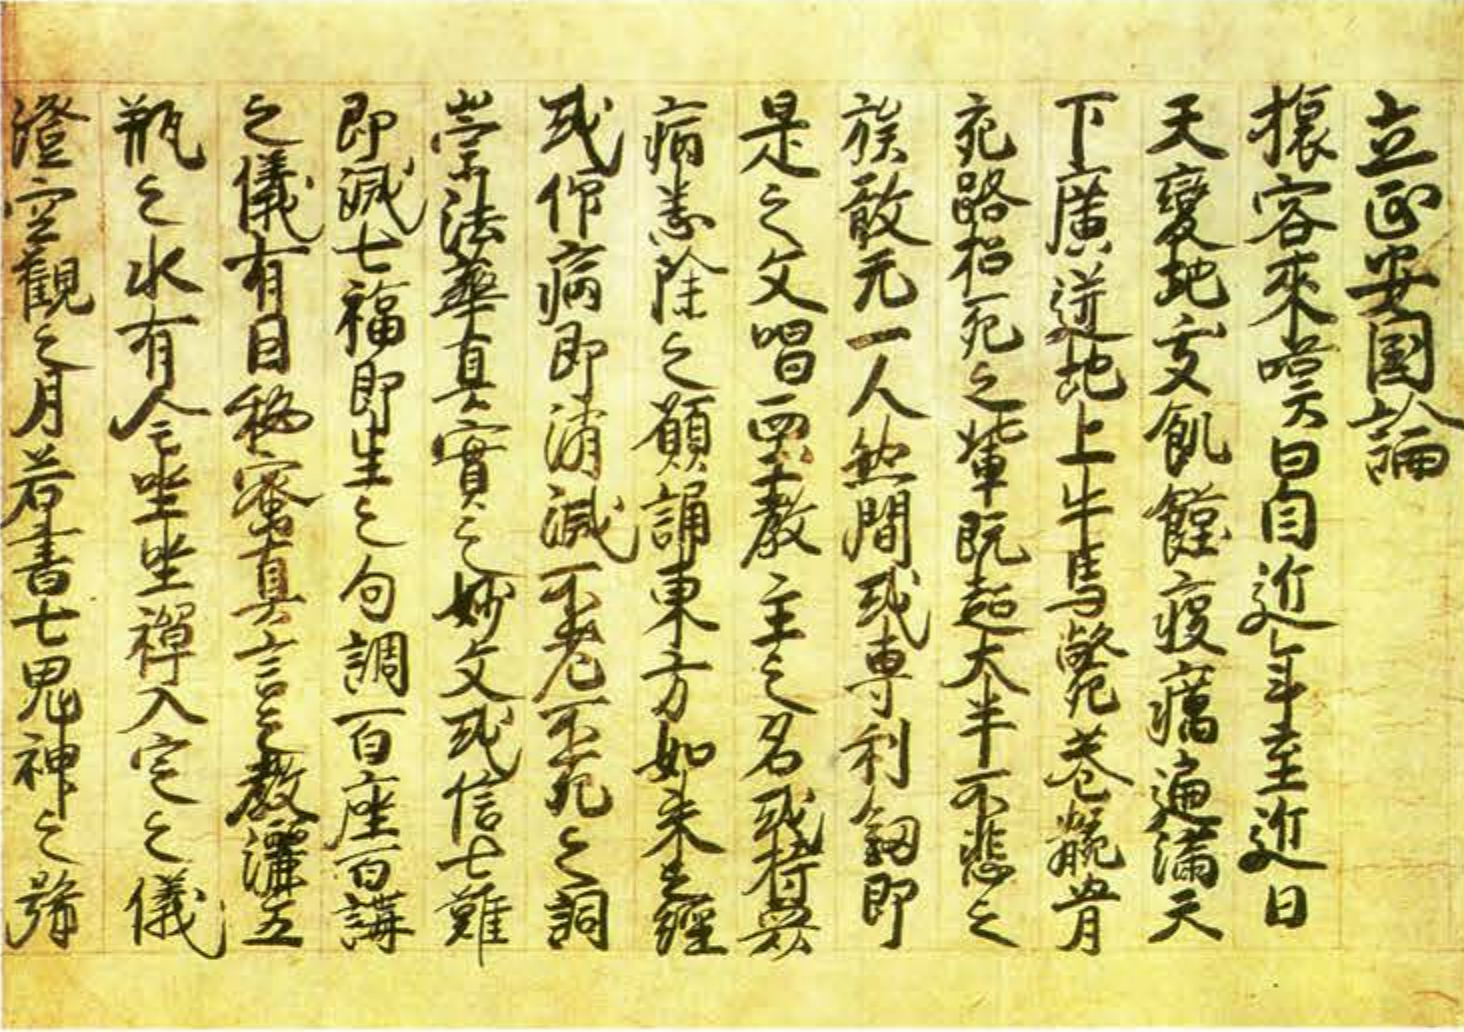 立正安国論
旅客來嘆曰自近年至近日
天變地夭飢饉疫癘遍滿天
下廣迸地上牛馬斃巷骸骨
充路招死之輩既超大半不悲之
族敢无一人然間或專利劔即
是之文唱西土教主之名或持衆
病悉除之願誦東方如來之經
或仰病即消滅不老不死之詞
崇法華真實之妙文或信七難
即滅七福即生之句調百座百講
之儀有因秘密真言之教灑五
瓶之水有全坐禪入定之儀
澄空觀之月若書七鬼神之號